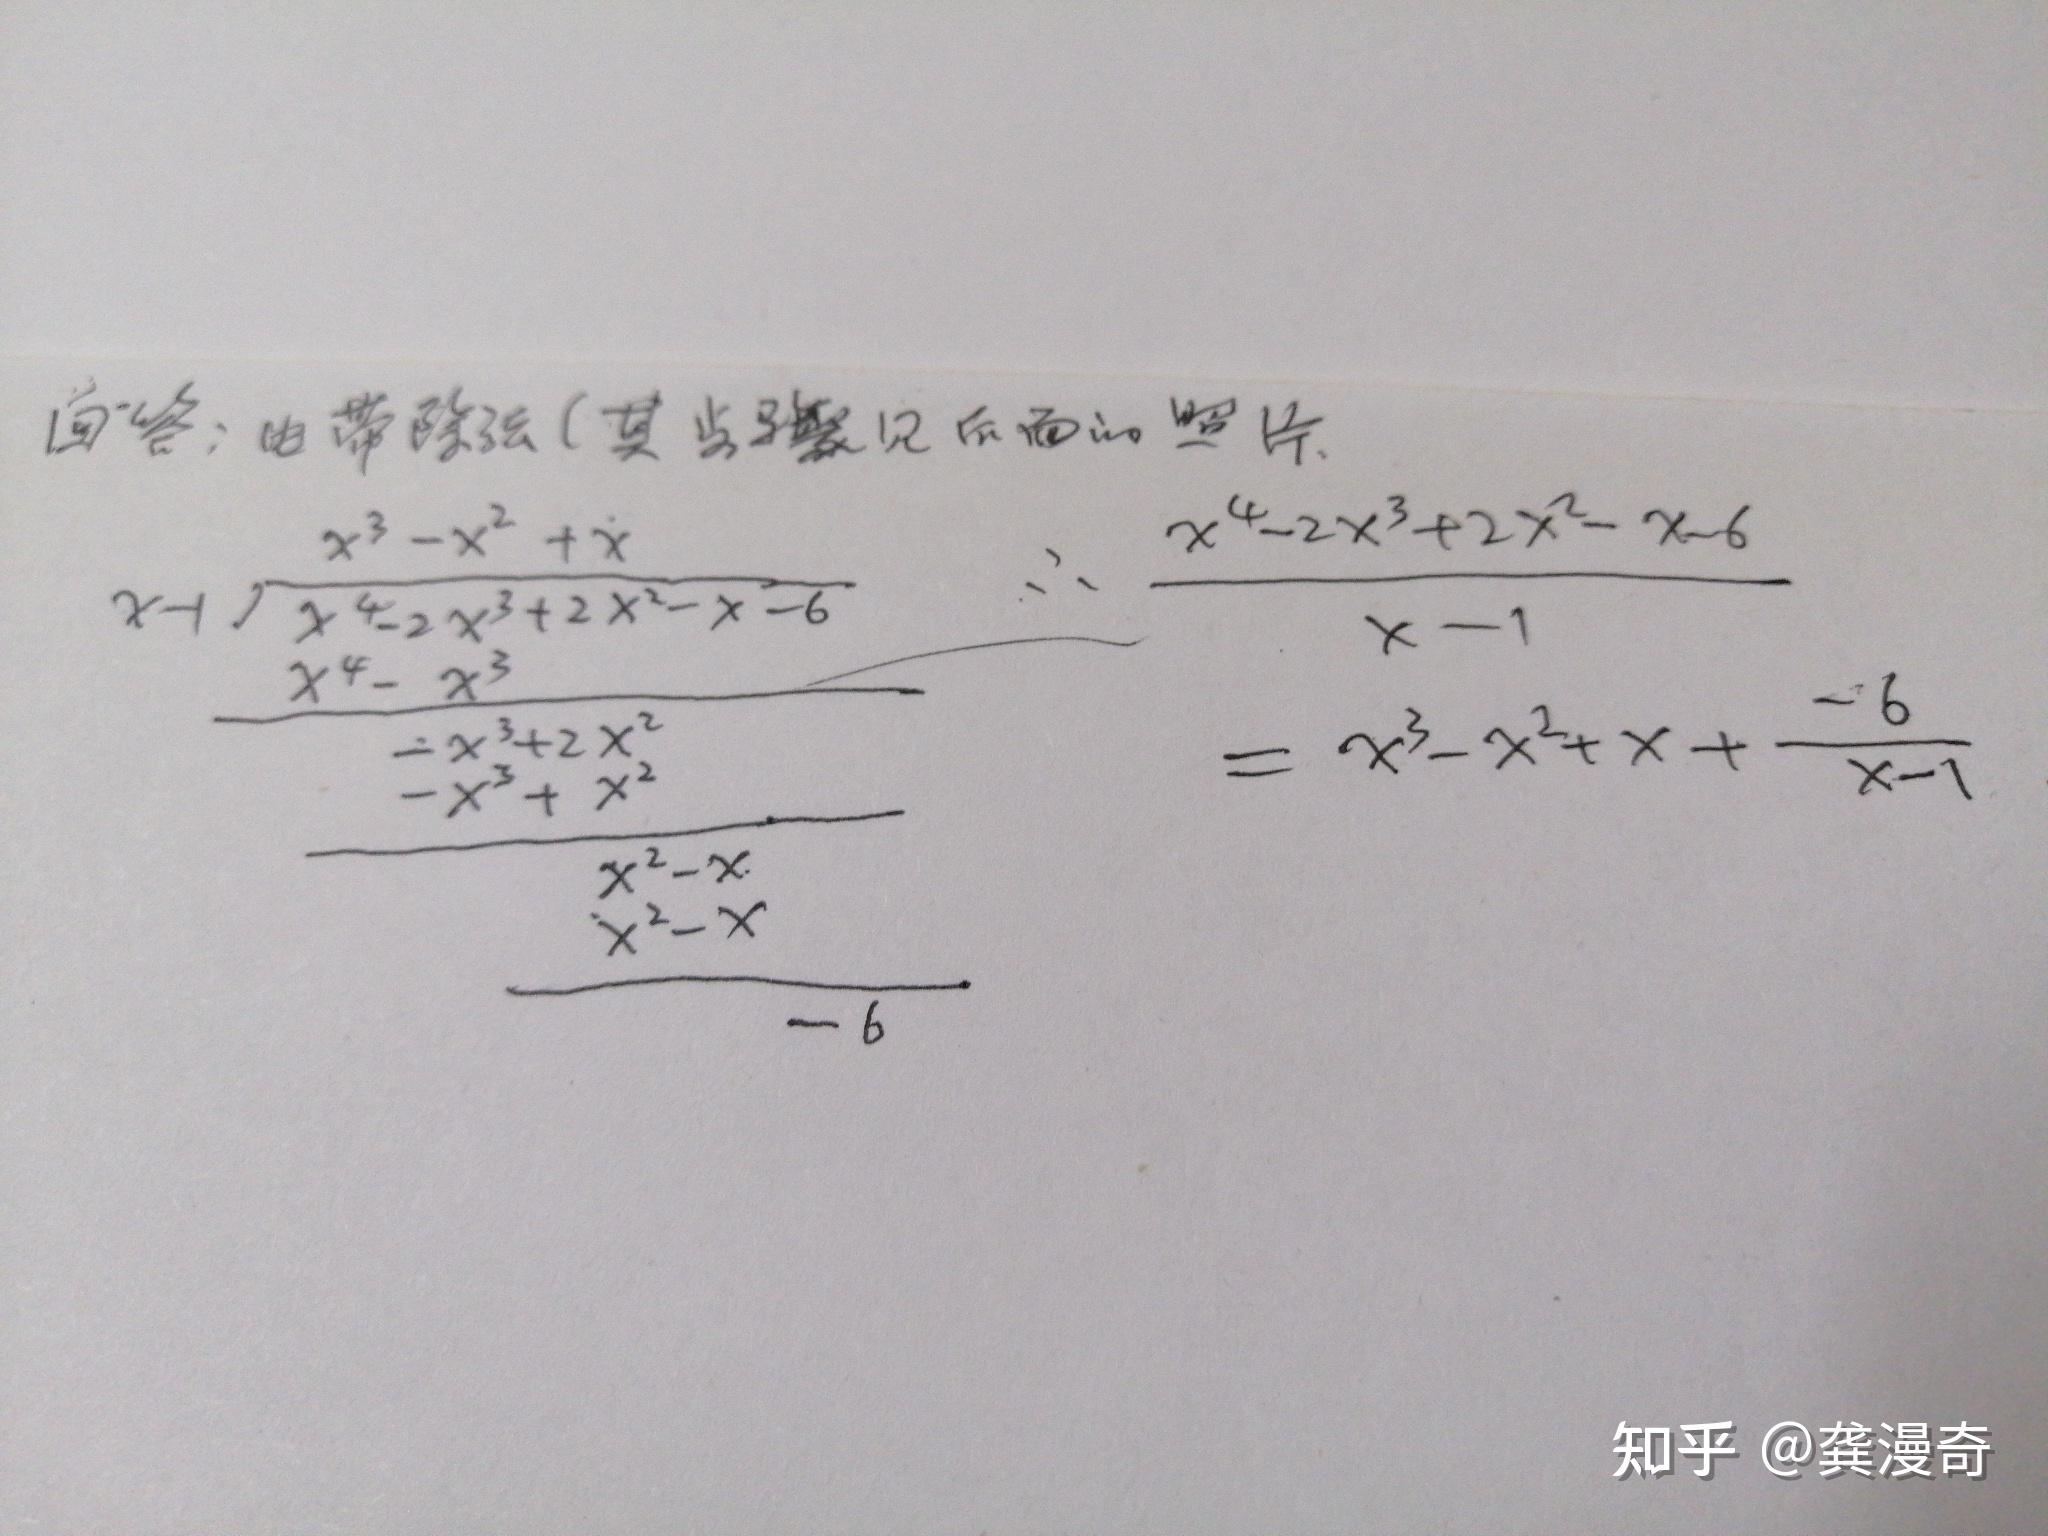 回答:由带除法(其步骤见后面的照片.
x³ - x² + x
x-1 ) x⁴-2x³+2x²-x-6
x⁴- x³
-x³+2x²
-x³+ x²
x²-x
x²-x
-6
∴ x⁴-2x³+2x²-x-6
x-1
= x³-x²+x+ -6
x-1
知乎 @龚漫奇